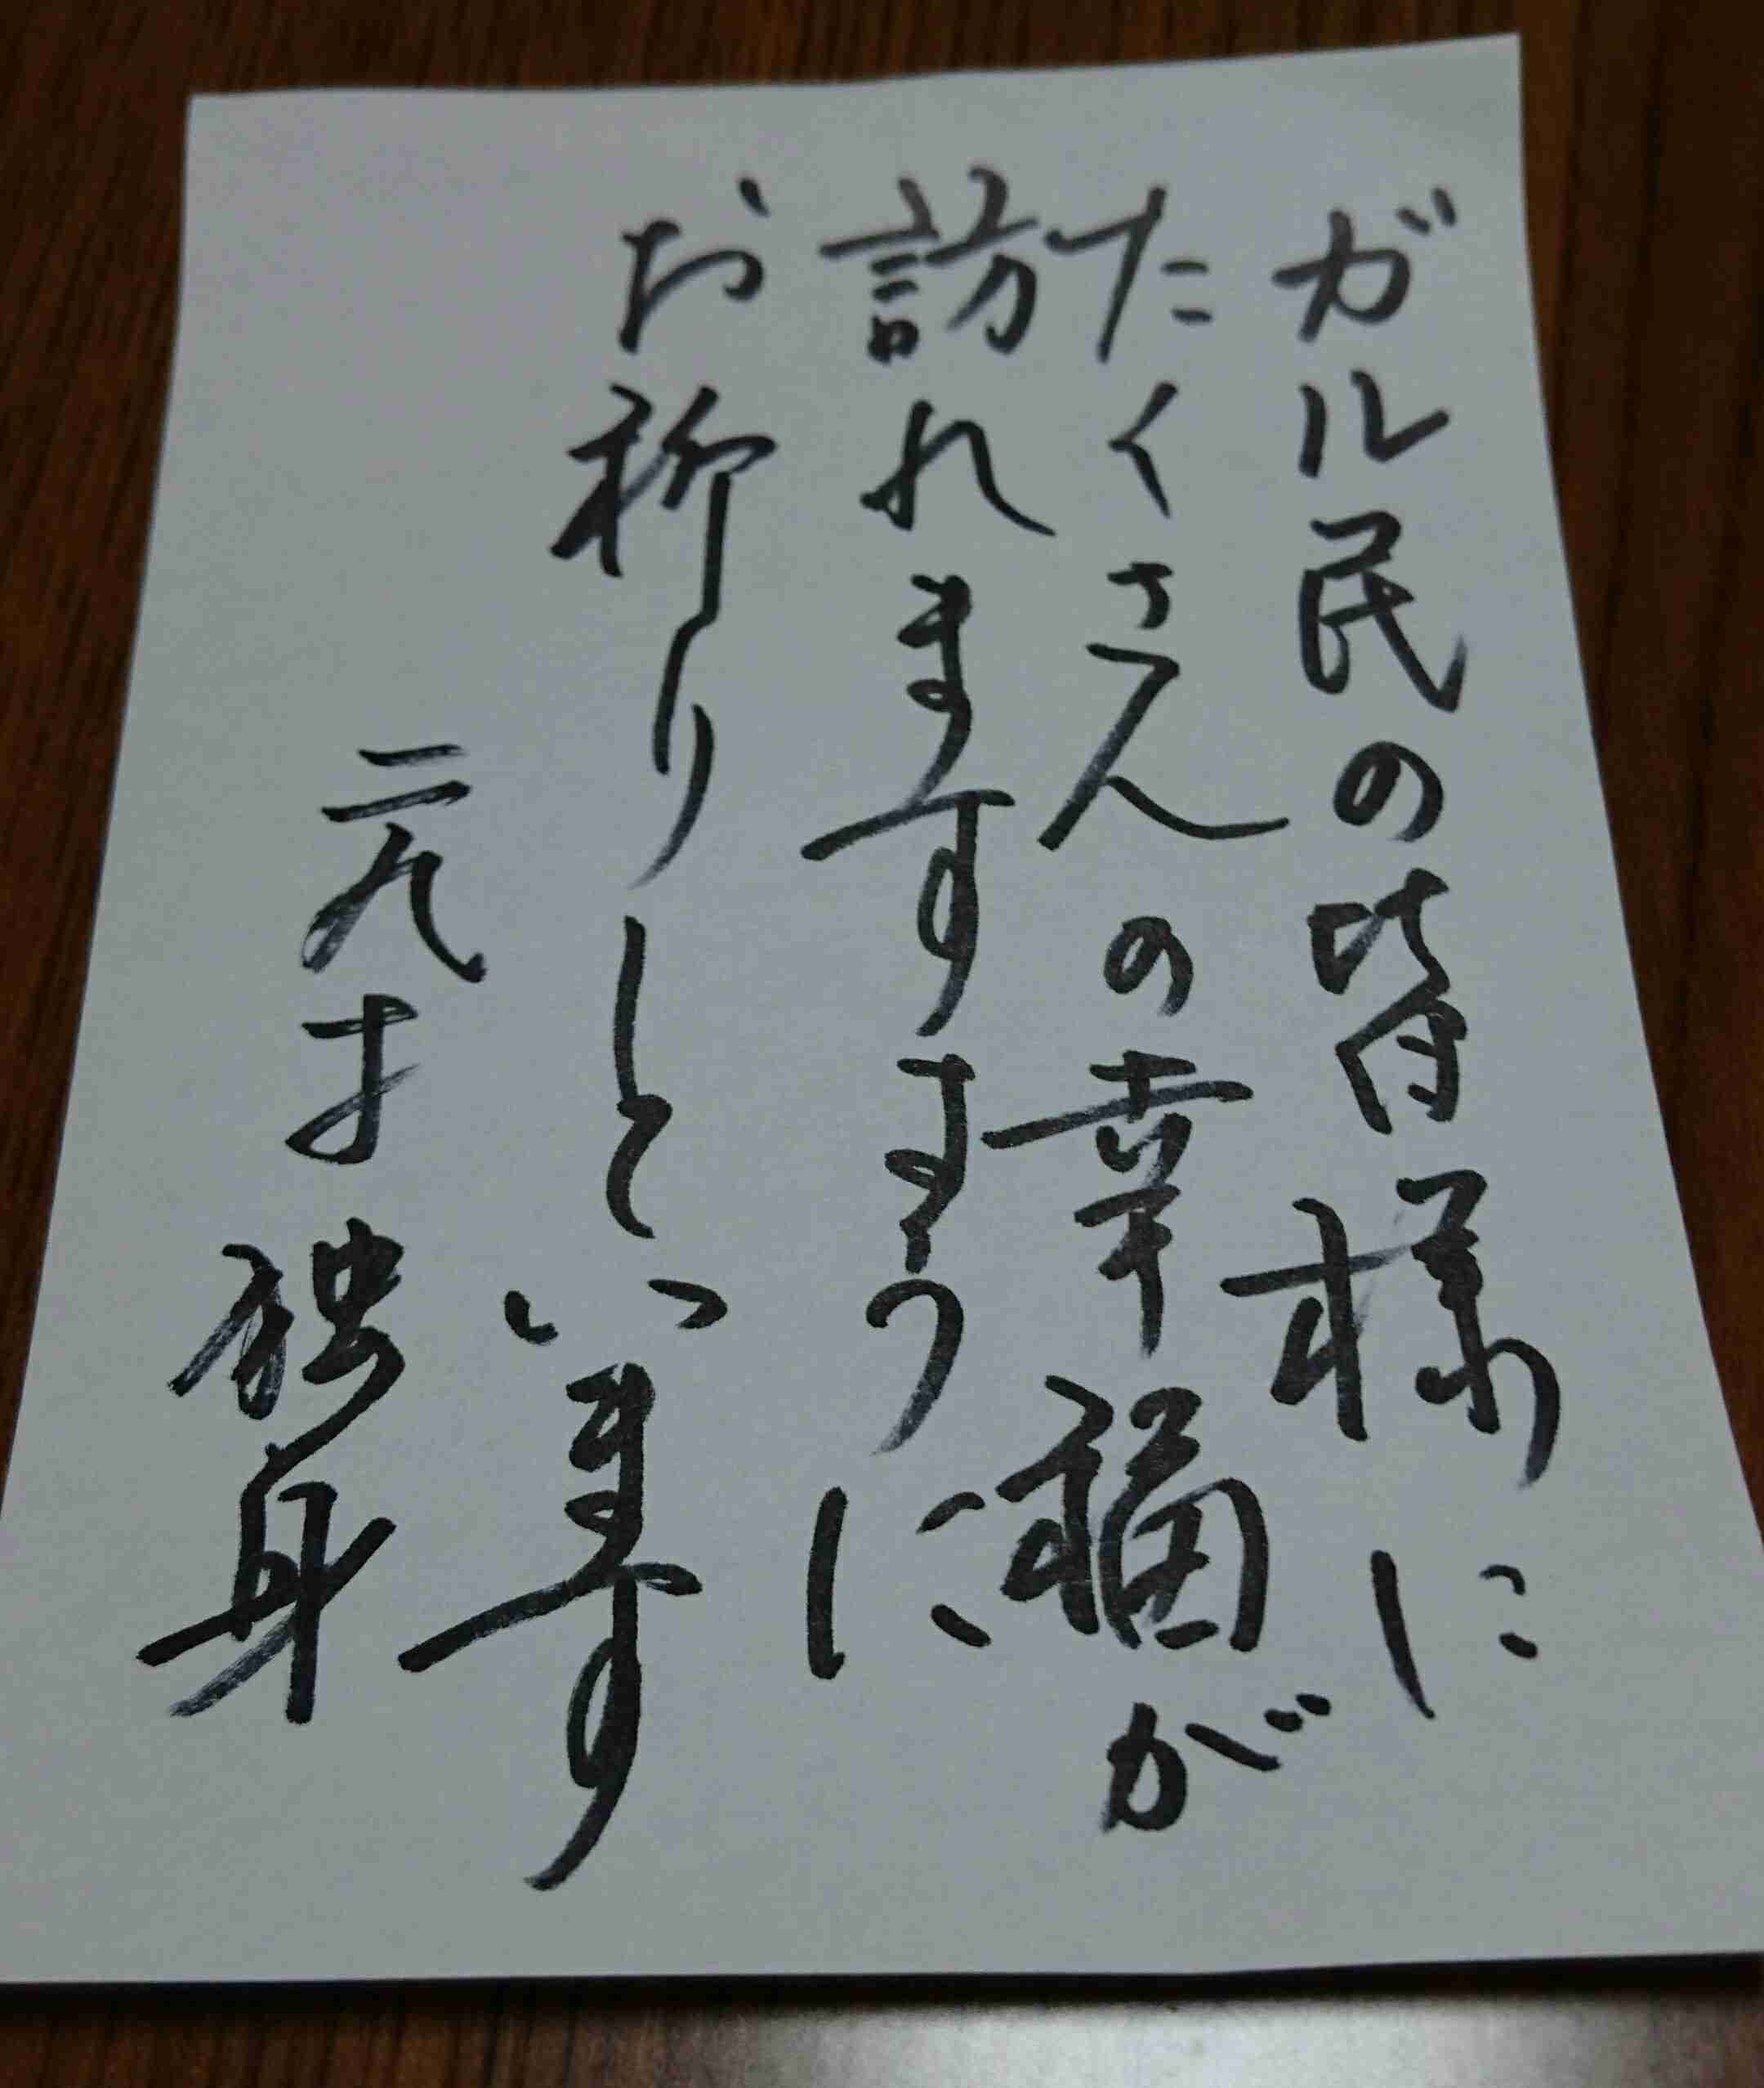 ガル民の皆様に
たくさんの幸福が
訪れますように
お祈りしています
二九才 独身